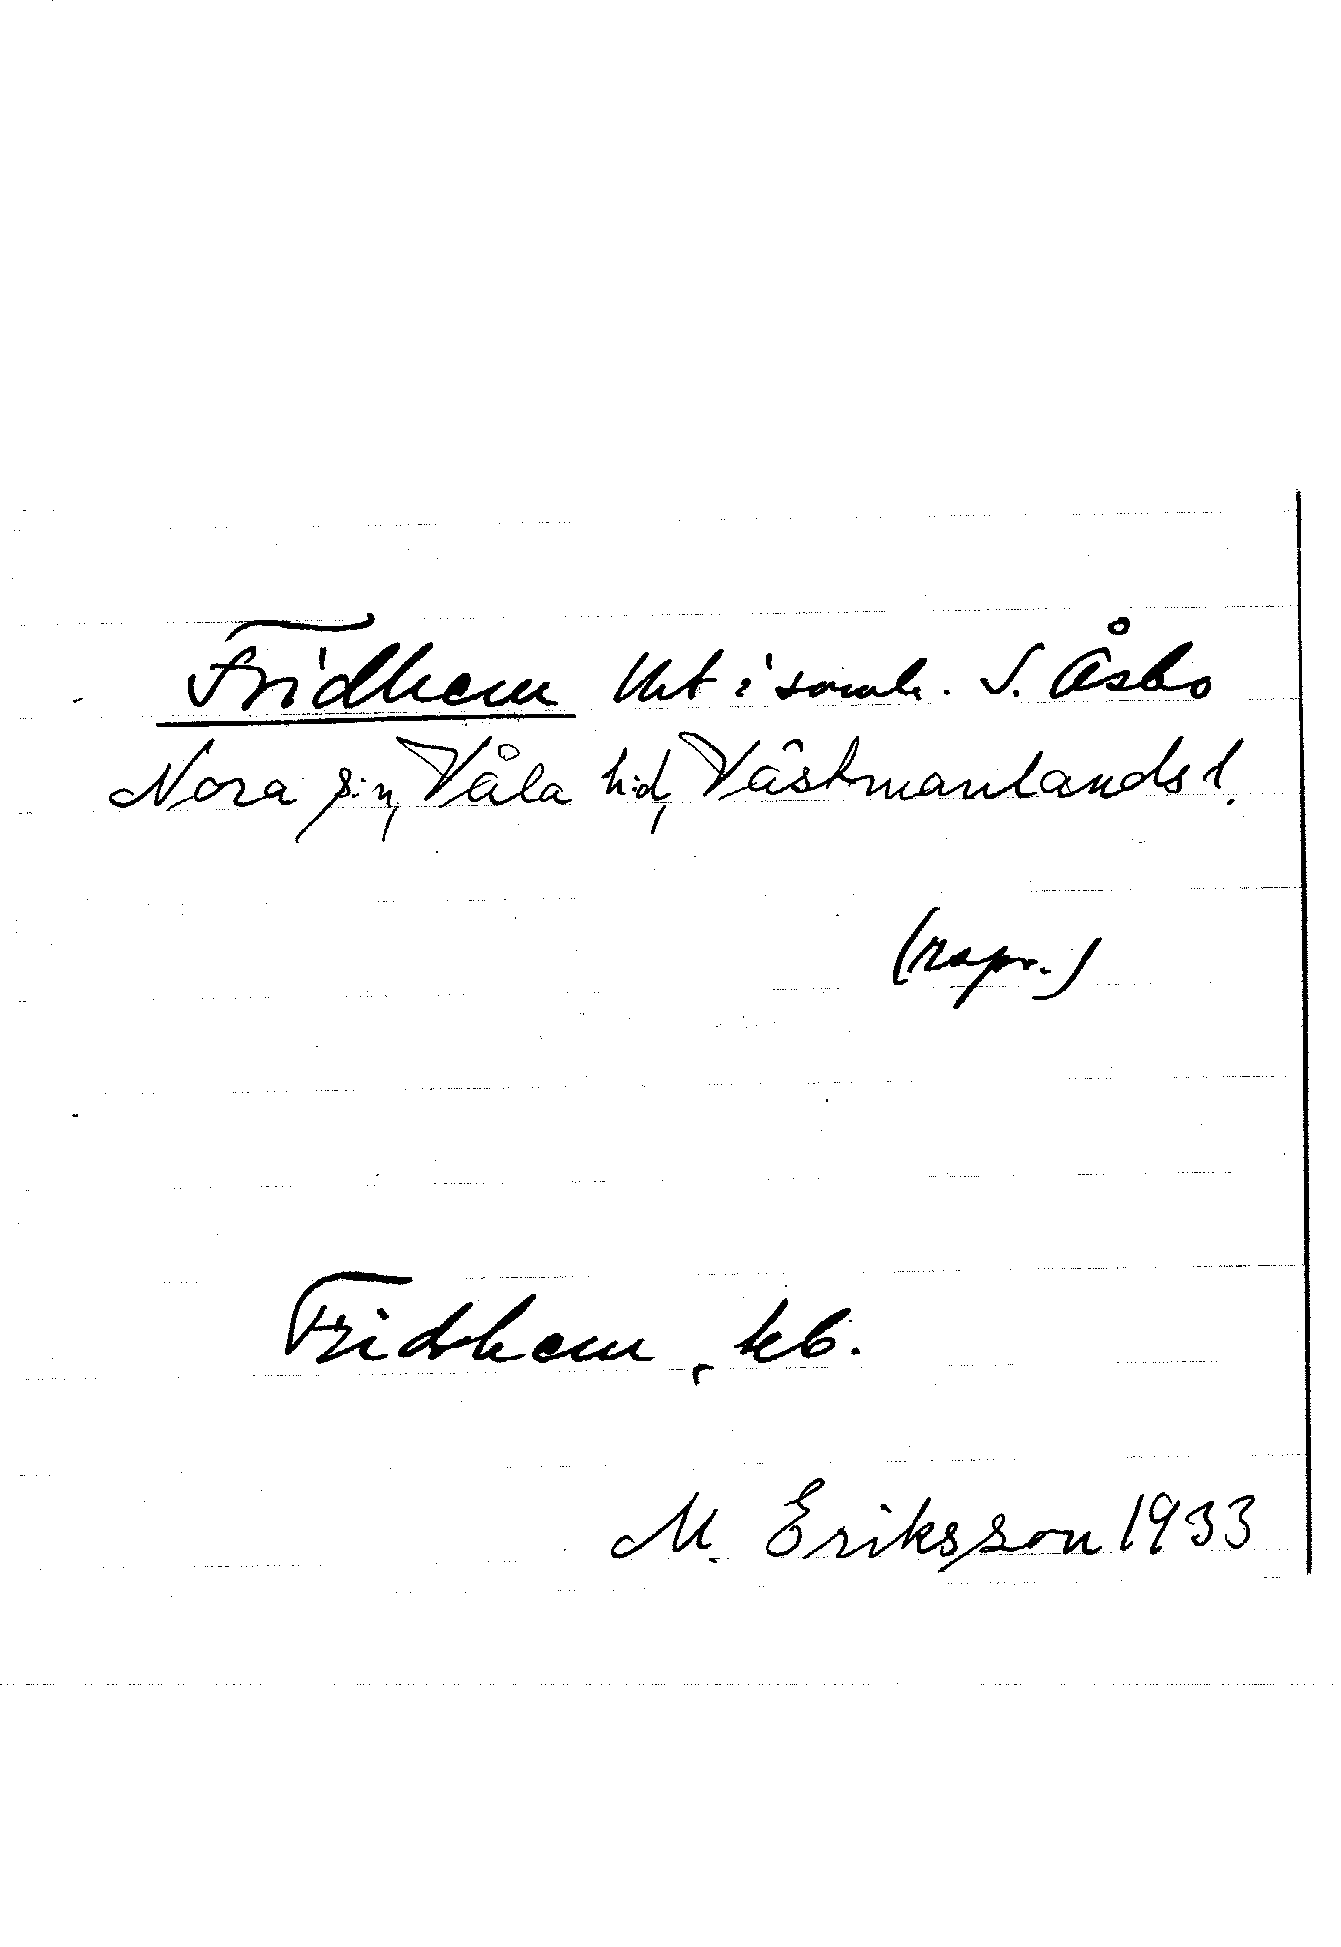 Fridhem lht i samh. S. Åsbo
Nora s:n, Våla hd, Västmanlands l.
(rspr.)
Fridhem, kb.
M. Eriksson 1933